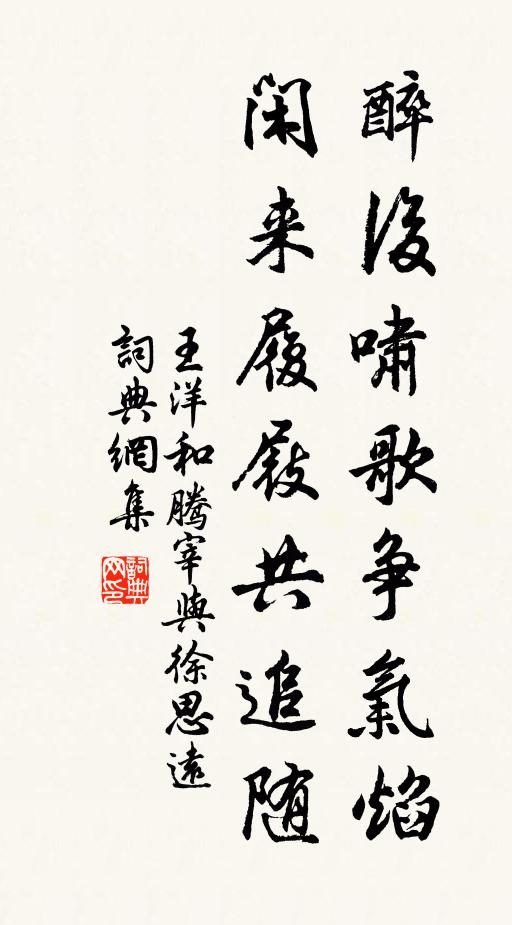 醉後嘯歌争氣焰
閑来履屐共追随
王洋和騰宰與徐思遠
詞典網集
詞典网印